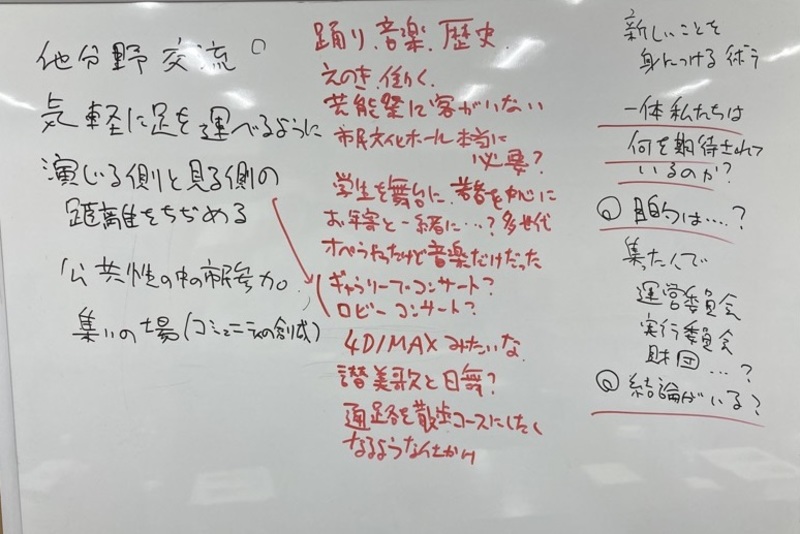 他分野交流。
気軽に足を運べるように
演じる側と見る側の
距離をちぢめる
公共性の中の市民参加。
集いの場(コミュニティの創成)
踊り、音楽、歴史、
えのき、働く、
芸能祭に客がいない
市民文化ホール本当に
必要?
学生を舞台に、若者を中心に
お年寄と一緒に…?多世代
オペラだったけど音楽だけだった
ギャラリーでコンサート?
ロビーコンサート?
4D/MAXみたいな
讃美歌と日舞?
通路を散歩コースにしたく
なるようなしかけ
新しいことを
身につける術う
一体私たちは
何を期待されて
いるのか?
Q 目的は‥‥?
集た人で
運営委員会
実行委員会
財団…?
Q 結論がいる?